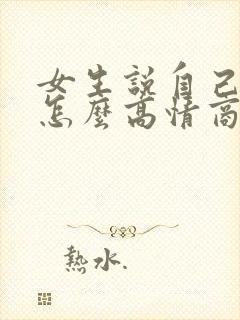 女生說自己
怎麼高情商
熱水.